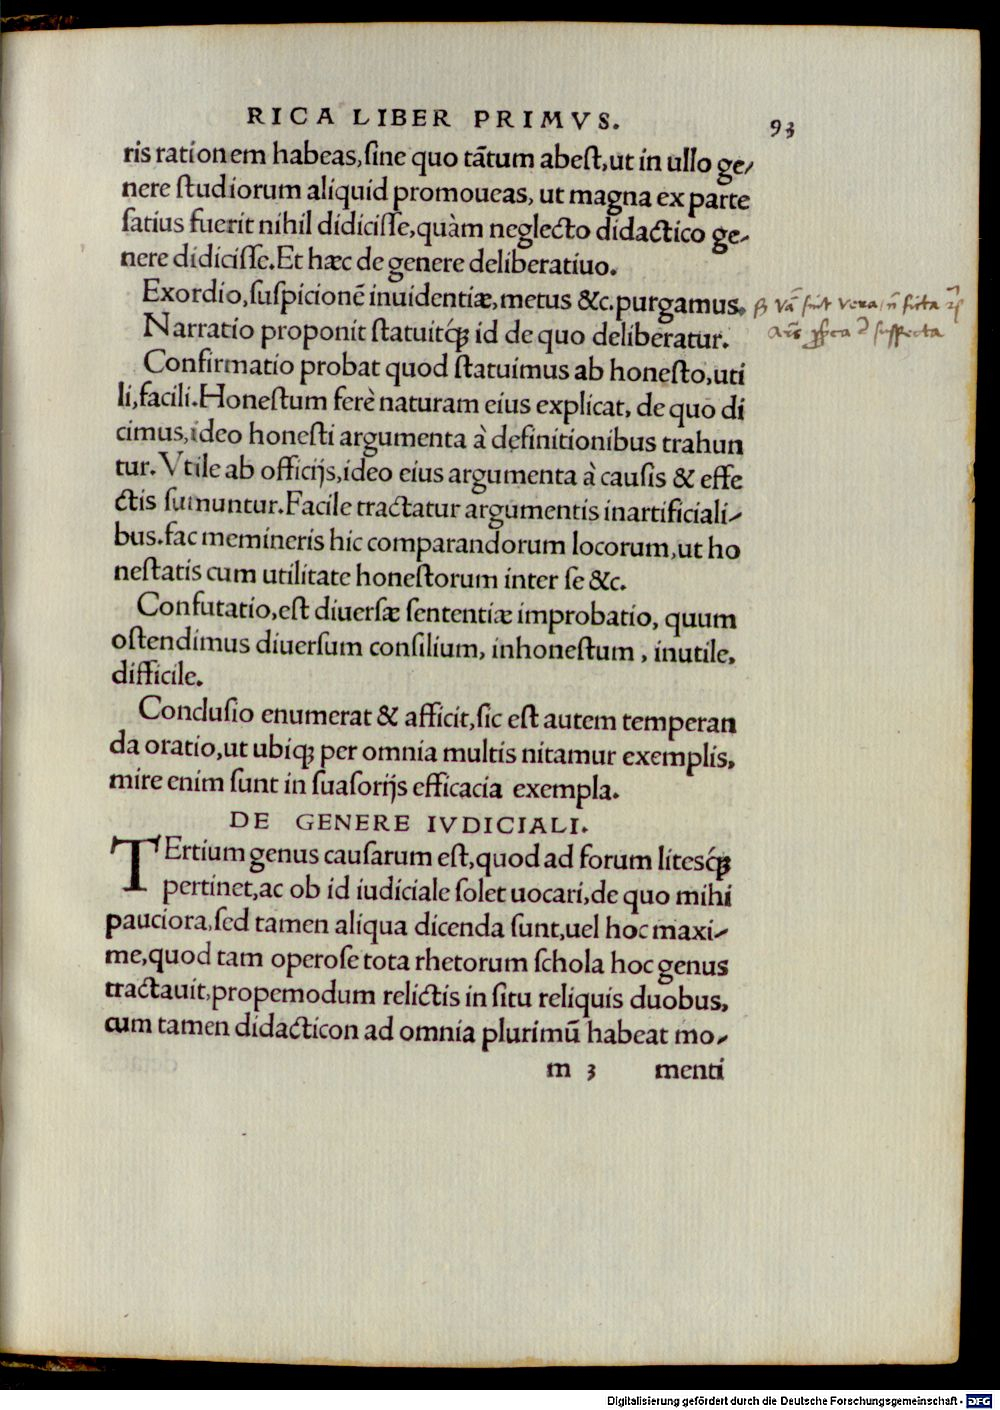 RICA LIBER PRIMVS. 93
ris rationem habeas, ſine quo tãtum abeſt, ut in ullo ge-
nere ſtudiorum aliquid promoueas, ut magna ex parte
ſatius fuerit nihil didiciſſe, quàm neglecto didactico ge-
nere didiciſſe. Et hæc de genere deliberatiuo.
Exordio, ſuſpicionẽ inuidentiæ, metus &c. purgamus.
Narratio proponit ſtatuitq́ꝫ id de quo deliberatur.
Confirmatio probat quod ſtatuimus ab honeſto, uti
li, facili. Honeſtum ferè naturam eius explicat, de quo di
cimus, ideo honeſti argumenta à definitionibus trahun
tur. Vtile ab officijs, ideo eius argumenta à cauſis & effe
ctis ſumuntur. Facile tractatur argumentis inartificiali-
bus. fac memineris hic comparandorum locorum, ut ho
neſtatis cum utilitate honeſtorum inter ſe &c.
Confutatio, eſt diuerſæ ſententiæ improbatio, quum
oſtendimus diuerſum conſilium, inhoneſtum, inutile,
difficile.
Concluſio enumerat & afficit, ſic eſt autem temperan
da oratio, ut ubiqꝫ per omnia multis nitamur exemplis,
mire enim ſunt in ſuaſorijs efficacia exempla.
DE GENERE IVDICIALI.
TErtium genus cauſarum eſt, quod ad forum litesq́ꝫ
pertinet, ac ob id iudiciale ſolet uocari, de quo mihi
pauciora, ſed tamen aliqua dicenda ſunt, uel hoc maxi-
me, quod tam operoſe tota rhetorum ſchola hoc genus
tractauit, propemodum relictis in ſitu reliquis duobus,
cum tamen didacticon ad omnia plurimũ habeat mo-
m 3 menti
vera
ficta
ſuſpecta
Digitalisierung gefördert durch die Deutsche Forschungsgemeinschaft - DFG